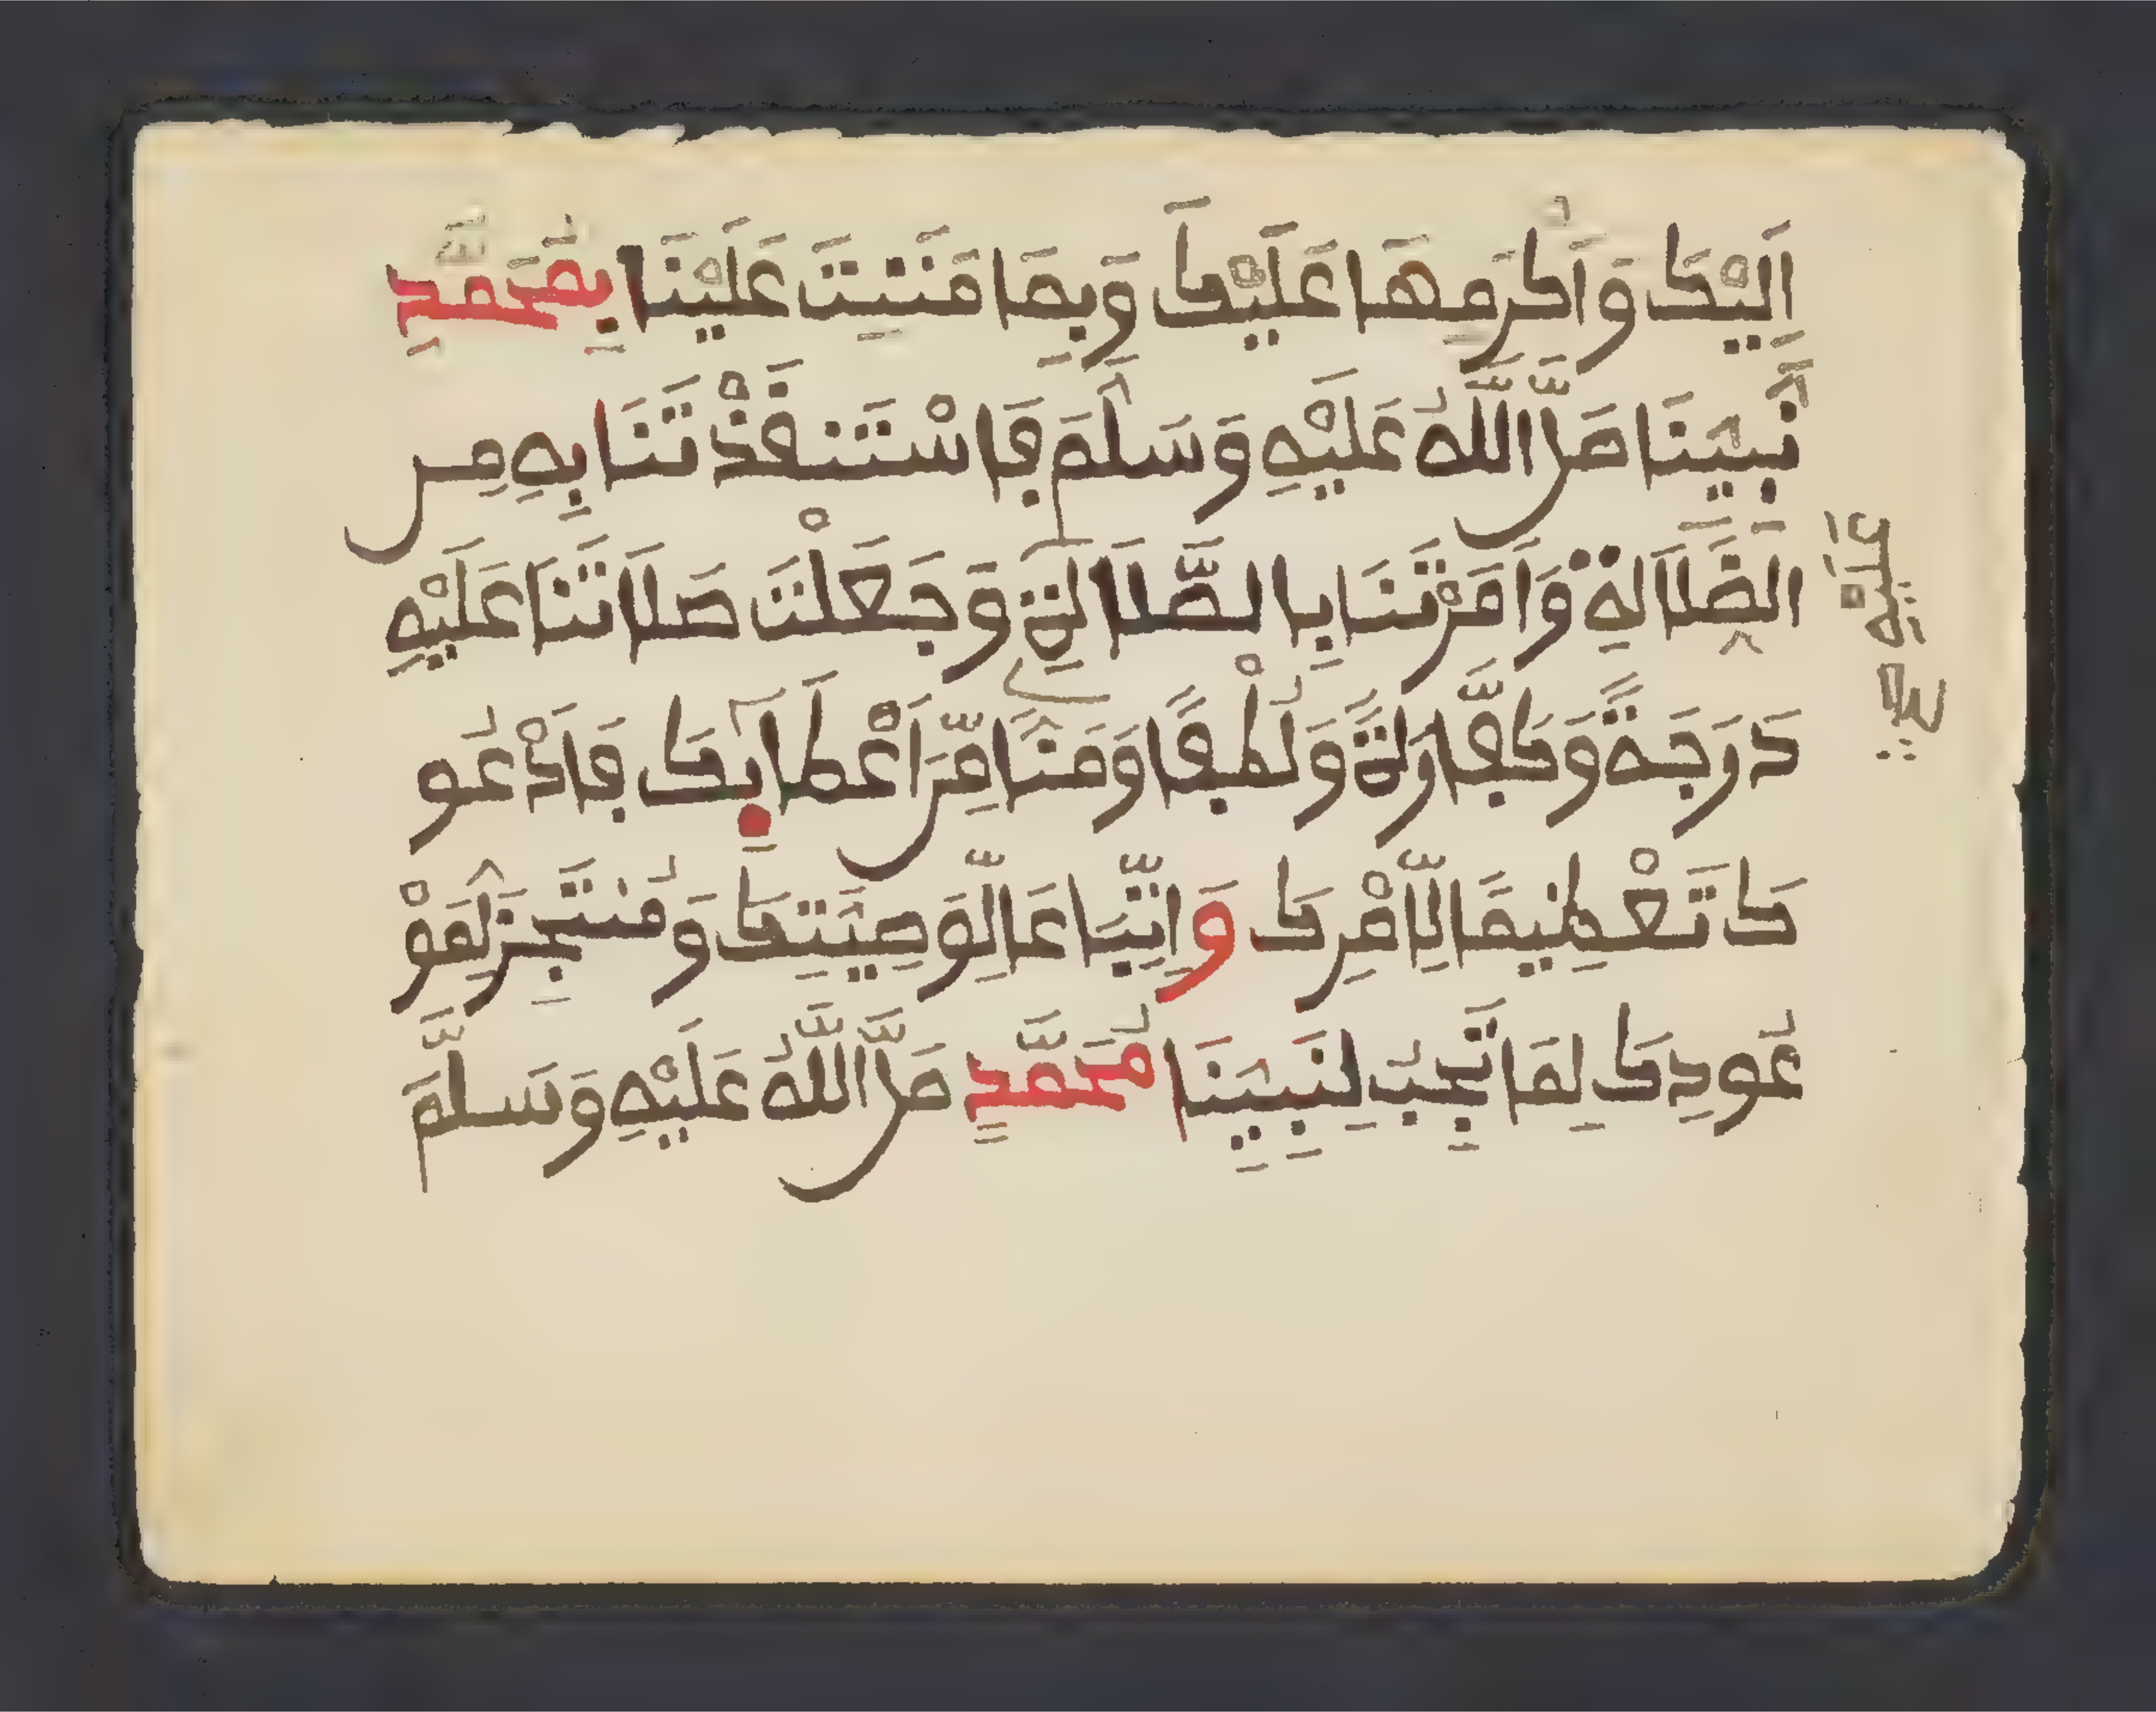 اِلَيْكَ وَاَكْرَمِهَا عَلَيْكَ وَبِمَا مَنَنْتَ عَلَيْنَا بِمُحَمَّدٍ
نَبِيِّنَا صَلَّى اللَّهُ عَلَيْهِ وَسَلَّمَ فَاسْتَنْقَذْتَنَا بِهِ مِن
الضَّلَالَةِ وَاَمَرْتَنَا بِالصَّلَاةِ وَجَعَلْتَ صَلَاتَنَا عَلَيْهِ
دَرَجَةً وَكَفَّارَةً وَلُطْفًا وَمَنًّا مِّنْ اَعْطَآئِكَ فَاَدْعُو
كَ تَعْظِيمًا لِّاَمْرِكَ وَاتِّبَاعًا لِّوَصِيَّتِكَ وَمُنْتَجِزًا لِمَوْ
عُودِكَ لِمَا يَجِبُ لِنَبِيِّنَا مُحَمَّدٍ صَلَّى اللَّهُ عَلَيْهِ وَسَلَّمَ